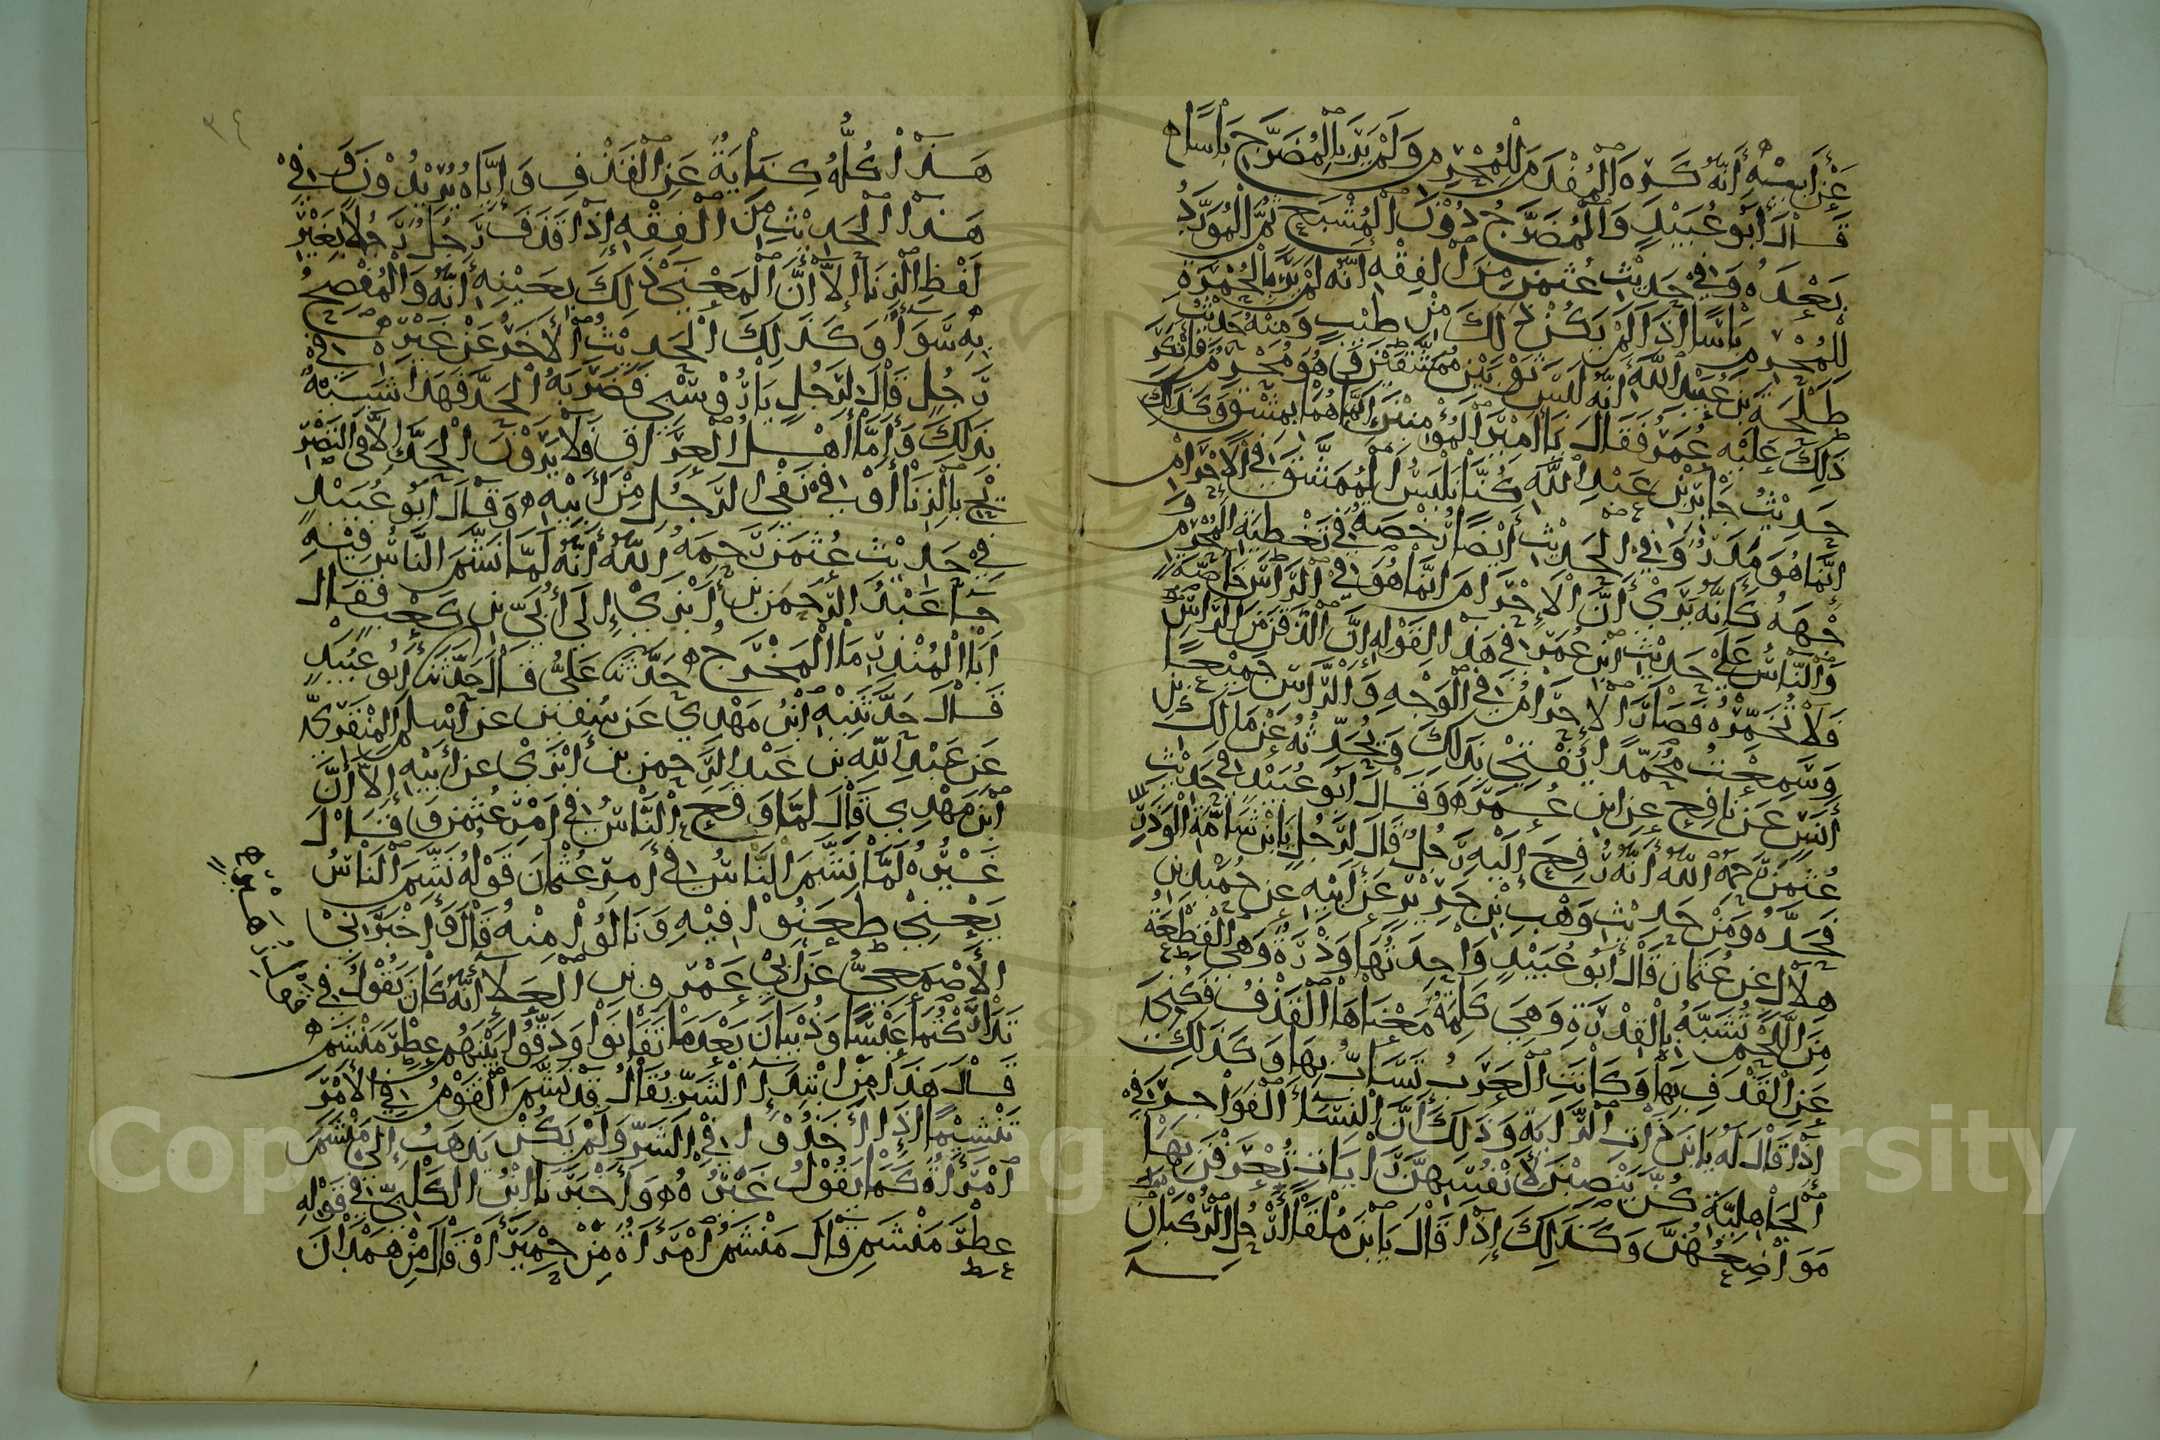 عَنْ أبيه أنَّه كَرِهَ المُفْدَمَ لِلمُحْرِمِ وَلَمْ يَرَ بالمُضَرَّجِ بَاسًا ه
قَالَ أبُو عُبَيْدٍ وَالمُضَرَّجُ دُوْنَ المُشْبَعِ ثُمَّ المُوَرَّدُ
بَعْدَهُ وَفي حَدِيْثِ عُثمن مِنَ الفِقْهِ أنّه لَمْ يَرَ بالحُمْرَةِ
لِلْمُحْرِمِ بَاسًا إذَا لَمْ يَكُنْ ذلكَ مِنْ طِيْبٍ وَمِنْهُ حَدِيْثُ
طَلْحَةَ بنِ عُبَيْدِ اللَّهِ أنَّه لَبِسَ ثَوْبَيْنِ مُمَشَّقَيْنِ وَهُوَ مُحْرِمٌ فَأنْكَرَ
ذَلِكَ عَلَيْهِ عُمَرُ فَقَالَ يَا أمِيْرَ المُؤْمِنِيْنَ إنَّمَا هُمَا بِمِشْقٍ وَكَذَلِكَ
حَدِيْثُ جَابِرِ بْنِ عَبْدِ اللَّهِ كُنَّا نَلْبَسُ المُمَشَّقَ في الإحْرَامِ
إنَّمَا هُوَ مَدَرٌ وَفي الحَدِيْثِ أيْضًا رُخْصَةٌ في تَغْطِيَةِ المُحْرِمِ
وَجْهَهُ كَأنَّهُ يَرَى أنَّ الإحْرَامَ إنَّمَا هُوَ في الرَّأسِ خَاصَّةً
وَالنَّاسُ عَلَى حَدِيْثِ ابْنِ عُمَرَ في هَذَا لقَوْلِهِ إنَّ الذَّقَنَ مِنَ الرَّاسِ
فَلا تُخَمِّرْهُ فَصَارَ الإحْرَامُ في الوَجْهِ وَالرَّاسِ جَمِيْعًا
وَسَمِعْتُ مُحَمَّدًا يُفْتِي بِذَلكَ وَيُحَدِّثُهُ عَنْ مَالكِ بنِ
أنَسٍ عَنْ نَافِعٍ عن ابنِ عُمَرَ ه وَقَالَ أبُو عُبَيْدٍ في حَدِيْثِ
عُثمنَ رَحِمَهُ اللَّهُ أنَّهُ رُفِعَ إلَيْهِ رَجُلٌ قَالَ لِرَجُلٍ يَا ابْنَ شَامَّةِ الوَذْرِ
فَحَدَّهُ وَمِنْ حَدِيْثِ وَهْبِ بْنِ جَرِيْرٍ عَنْ أبِيْهِ عن حُمَيْدِ بنِ
هِلَالٍ عن عُثمَانَ قَالَ أبُو عُبَيْدٍ وَاحِدَتُهَا وَذْرَةٌ وَهِيَ القِطْعَةُ
مِنَ اللَّحْمِ تُشَبَّهُ بِالفِدْرَةِ وَهِيَ كَلِمَةٌ مَعْنَاهَا القَذْفُ فَكُنِيَ
عَنِ القَذْفِ بِهَا وَكَانَتِ العَرَبُ تَسَابُّ بِهَا وَكَذَلكَ
إذَا قَالَ لَهُ يَا ابنَ ذَاتِ الرَّايَةِ وَذَلِكَ أنَّ النِّسَاءَ الفَوَاجِرَ في
الجَاهِلِيَّةِ كُنَّ يَنْصِبْنَ لأنْفُسِهِنَّ رَايَاتٍ تُعْرَفْنَ بِهَا
مَوَاضِعُهُنَّ وَكَذَلِكَ إذَا قَالَ يَا ابْنَ مُلْقَا أرْحُلِ الرُّكْبَانِ
٣٤
هَذَا كُلُّهُ كِنَايَةٌ عَنِ القَذْفِ وَإيَّاهُ يُرِيْدُوْنَ وَفي
هَذَا الحَدِيْثِ مِنَ الفِقْهِ إذَا قَذَفَ رَجُلٌ رَجُلًا بِغَيْرِ
لَفْظِ الزِّنَا إلاَّ أنَّ المَعْنَى ذَلكَ بِعَيْنِهِ أنَّهُ وَالمُفْصِحُ
بِهِ سَوَاءٌ وَكَذَلِكَ الحَدِيْثُ الآخَرُ عَنْ غَيْرِهِ في
رَجُلٍ قَالَ لِرَجُلٍ يَا رُوْسَبِي فَضَرَبَهُ الحَدَّ فَهَذَا شَبِيْهٌ
بِذَلكَ وَأمَّا أهْلُ العِرَاقِ فَلا يَرَوْنَ الحَدَّ إلَّا في التَصْرِ
يْحِ بِالزِنَا أوْ في نَفْي الرَجُلِ مِنْ أبِيْهِ ه وَقَالَ أبُو عُبَيْدٍ
في حَدِيْثِ عُثمنَ رَحِمَهُ اللَّهُ أنَّهُ لَمَّا نَشَّمَ النَّاسُ فِيْهِ
جَاءَ عَبْدُ الرَّحْمن بنُ أبْزَى إلَى أُبَيِّ بنِ كَعْبٍ فَقَالَ
أبَا المُنْذِرِ مَا المَخْرَجُ ه حَدَّثَنَا عَلِيٌّ قَالَ حَدَّثَنَا أبُو عُبَيْدٍ
قَالَ حَدَّثَنِيْهِ ابْنُ مَهْدِيٍّ عَن سُفين عن أسْلَمَ المِنْقَرِيِّ
عَن عَبْدِ اللهِ بنِ عَبْدِ الرَّحمن بنِ أبْزَى عن أبِيْهِ إلاَّ أنَّ
ابْنَ مَهْدِيٍ قَالَ لَمَّا وَقَعَ النَّاسُ في أمْرِ عُثمنَ وَقَالَ
غَيْرُهُ لَمَّا نَشَّمَ النَّاسُ في أمرِ عُثْمَانَ قَوْلُهُ نَشَّمَ النَاسُ
يَعْنِي طَعَنُوْا فِيْهِ وَنَالُوْا مِنْهُ قَالَ وَأخْبَرَنِي
الأصْمَعِيُّ عَن أبي عَمْرو بنِ العَلاءِ أنَّهُ كَانَ يَقُوْلُ في
تَدَارَكْتُمَا عَبْسًا وَذُبْيَانَ بَعْدَمَا تَفَانَوْا وَدَقُّوْا بَيْنَهُم عِطْرَ مَنْشَمِ ه
قَالَ هَذَا مِن ابْتِدَاءِ الشَرِّ يُقَالُ قَدْ نَشَّمَ القَوْمُ في الأمْرِ
تَنْشِيْمًا إذَا أخَذُوْا في الشَرِّ وَلَمْ يَكُنْ يَذهَبُ إلَى مَنْشَمَ
امْرَأةً كَمَا يَقُوْلُ غَيْرُهُ ه وَأخْبَرَنَا ابْنُ الكَلْبِيِّ في قَوْلِهِ
عِطْرَ مَنْشَمِ قَالَ مَنْشَمُ امْرَأةٌ مِنْ حِمْيَرَ أوْ قَالَ مِنْ هَمْدَانَ